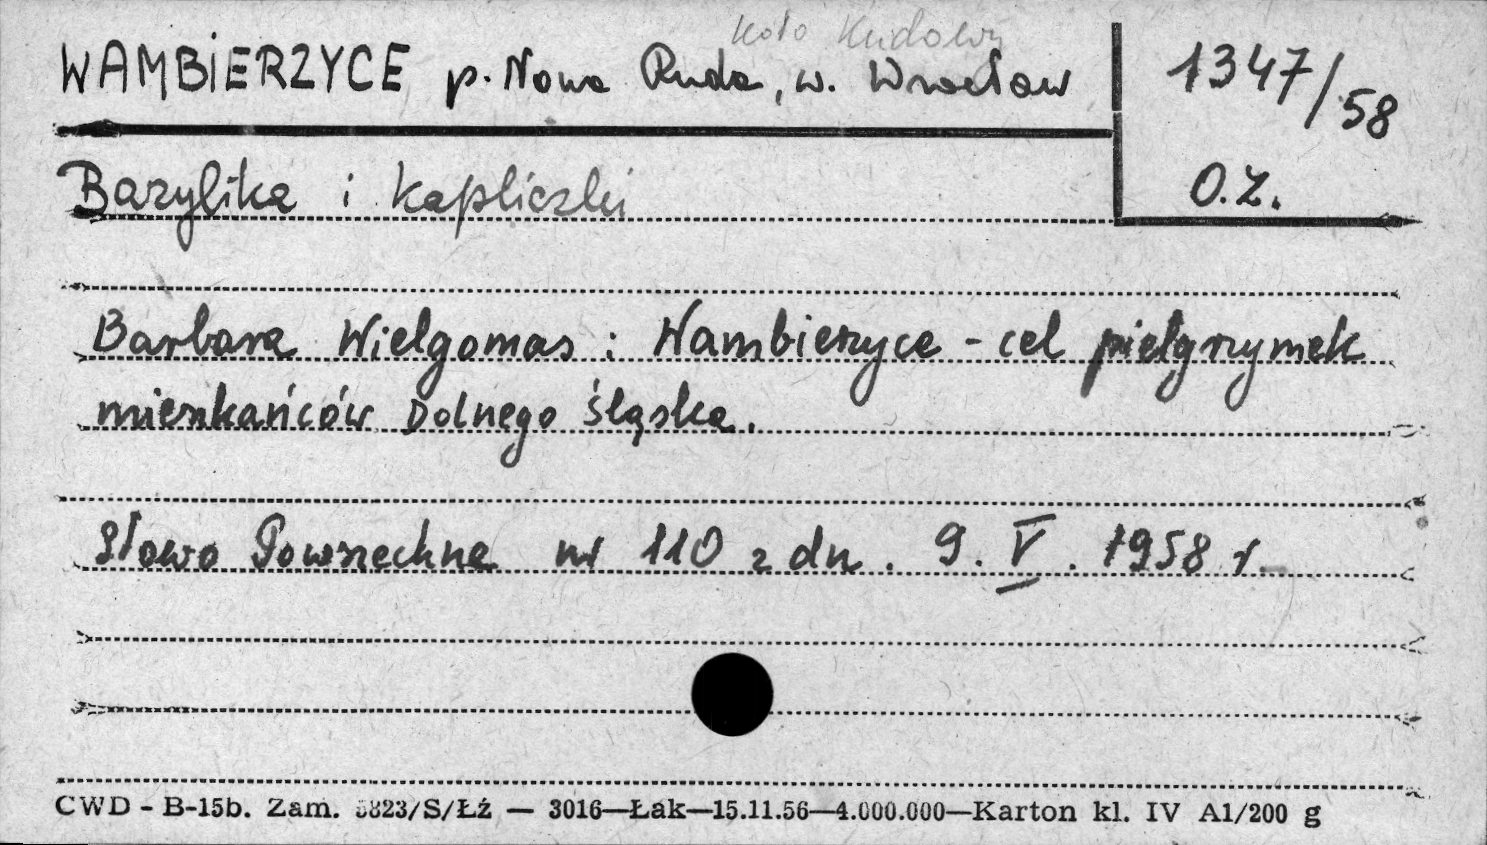 koło Kudowy
WAMBIERZYCE p. Nowa Ruda, w. Wrocław
1347/58
O.Z.
Bazylika i kapliczki
Barbara Wielgomas: Wambierzyce - cel pielgrzymek
mieszkańców Dolnego Śląska.
Słowo Powszechne nr 110 z dn. 9. V. 1958 r.
CWD - B-15b. Zam. 5823/S/Łź — 3016—Łak—15.11.56—4.000.000—Karton kl. IV A1/200 g